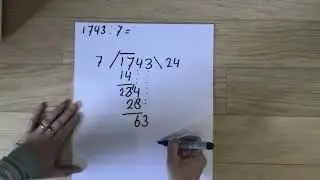 1743 : 7 =
7 / 1743 \ 24
14
34
28
63